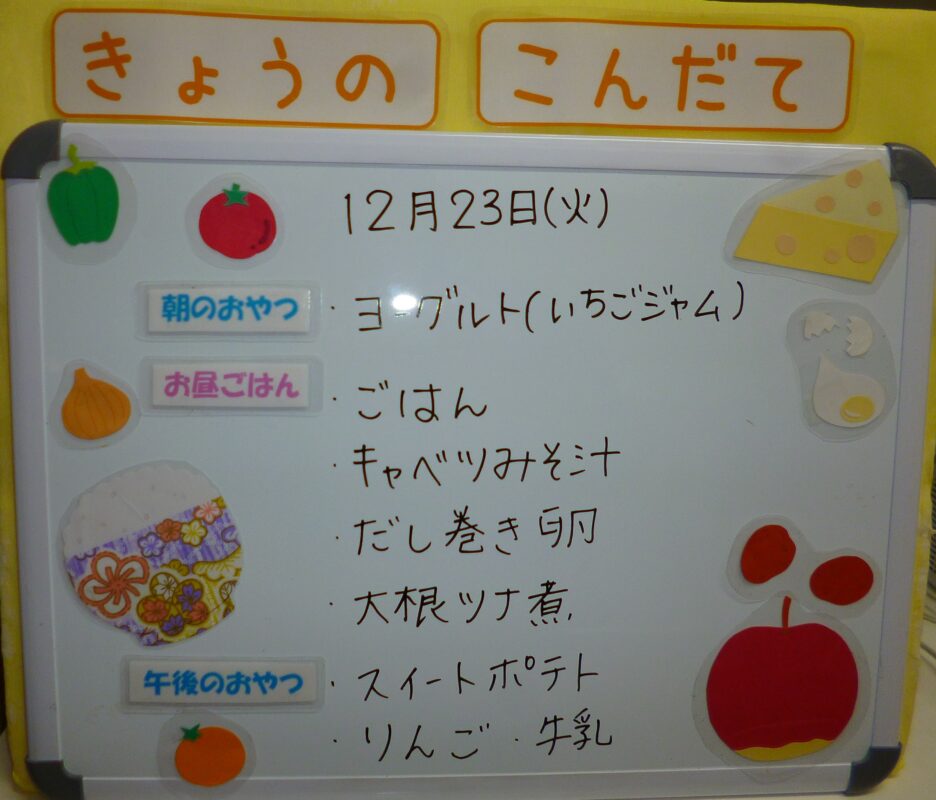 きょうの こんだて
12月23日(火)
朝のおやつ ・ヨーグルト(いちごジャム)
お昼ごはん ・ごはん
・キャベツみそ汁
・だし巻き卵
・大根ツナ煮
午後のおやつ ・スイートポテト
・りんご・牛乳